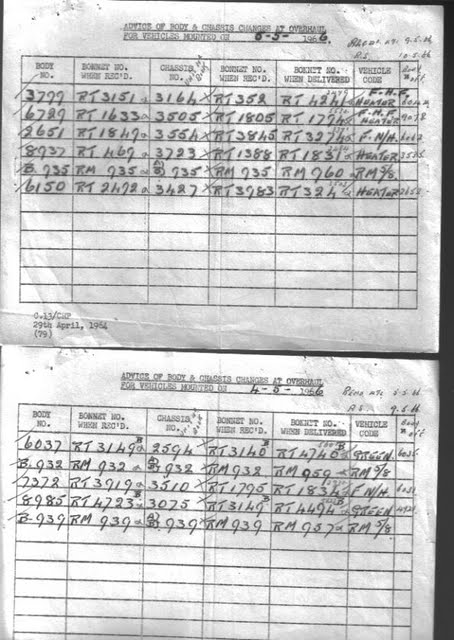 ADVICE OF BODY & CHASSIS CHANGES AT OVERHAUL
FOR VEHICLES MOUNTED ON 6-5- 1966 9.5.66
10.5.66
BODY NO. BONNET NO. WHEN REC'D. CHASSIS NO. BONNET NO. WHEN REC'D. BONNET NO. WHEN DELIVERED VEHICLE CODE Body off
3799 RT 3151 3164 RT 352 F.H.F. HEATER
6727 RT 1633 3505 RT 1805 RT 1774 F.H.F. HEATER
2651 RT 1849 3554 RT 3845 RT 3274 F. N/H.
8937 RT 469 3723 RT 1388 RT 1837 HEATER
B.935 RM 935 935 RM 935 RM 960 RM 5/8.
6150 RT 2492 3427 RT 3983 RT 324 HEATER
C.13/CHP
29th April, 1964
(79)
ADVICE OF BODY & CHASSIS CHANGES AT OVERHAUL
FOR VEHICLES MOUNTED ON 4-5- 1966 5.5.66
A.S. 9.5.66
BODY NO. BONNET NO. WHEN REC'D. CHASSIS NO. BONNET NO. WHEN REC'D. BONNET NO. WHEN DELIVERED VEHICLE CODE Body off
6037 RT 3149 B 2594 RT 3140 B RT 4740 B GREEN.
B.932 RM 932 932 RM 932 RM 959 RM 5/8
7372 RT 3919 3510 RT 1795 RT 1834 F N/H.
8985 RT 4723 B 3075 RT 3149 B RT 4494 B GREEN
B.939 RM 939 939 RM 939 RM 957 RM 5/8.